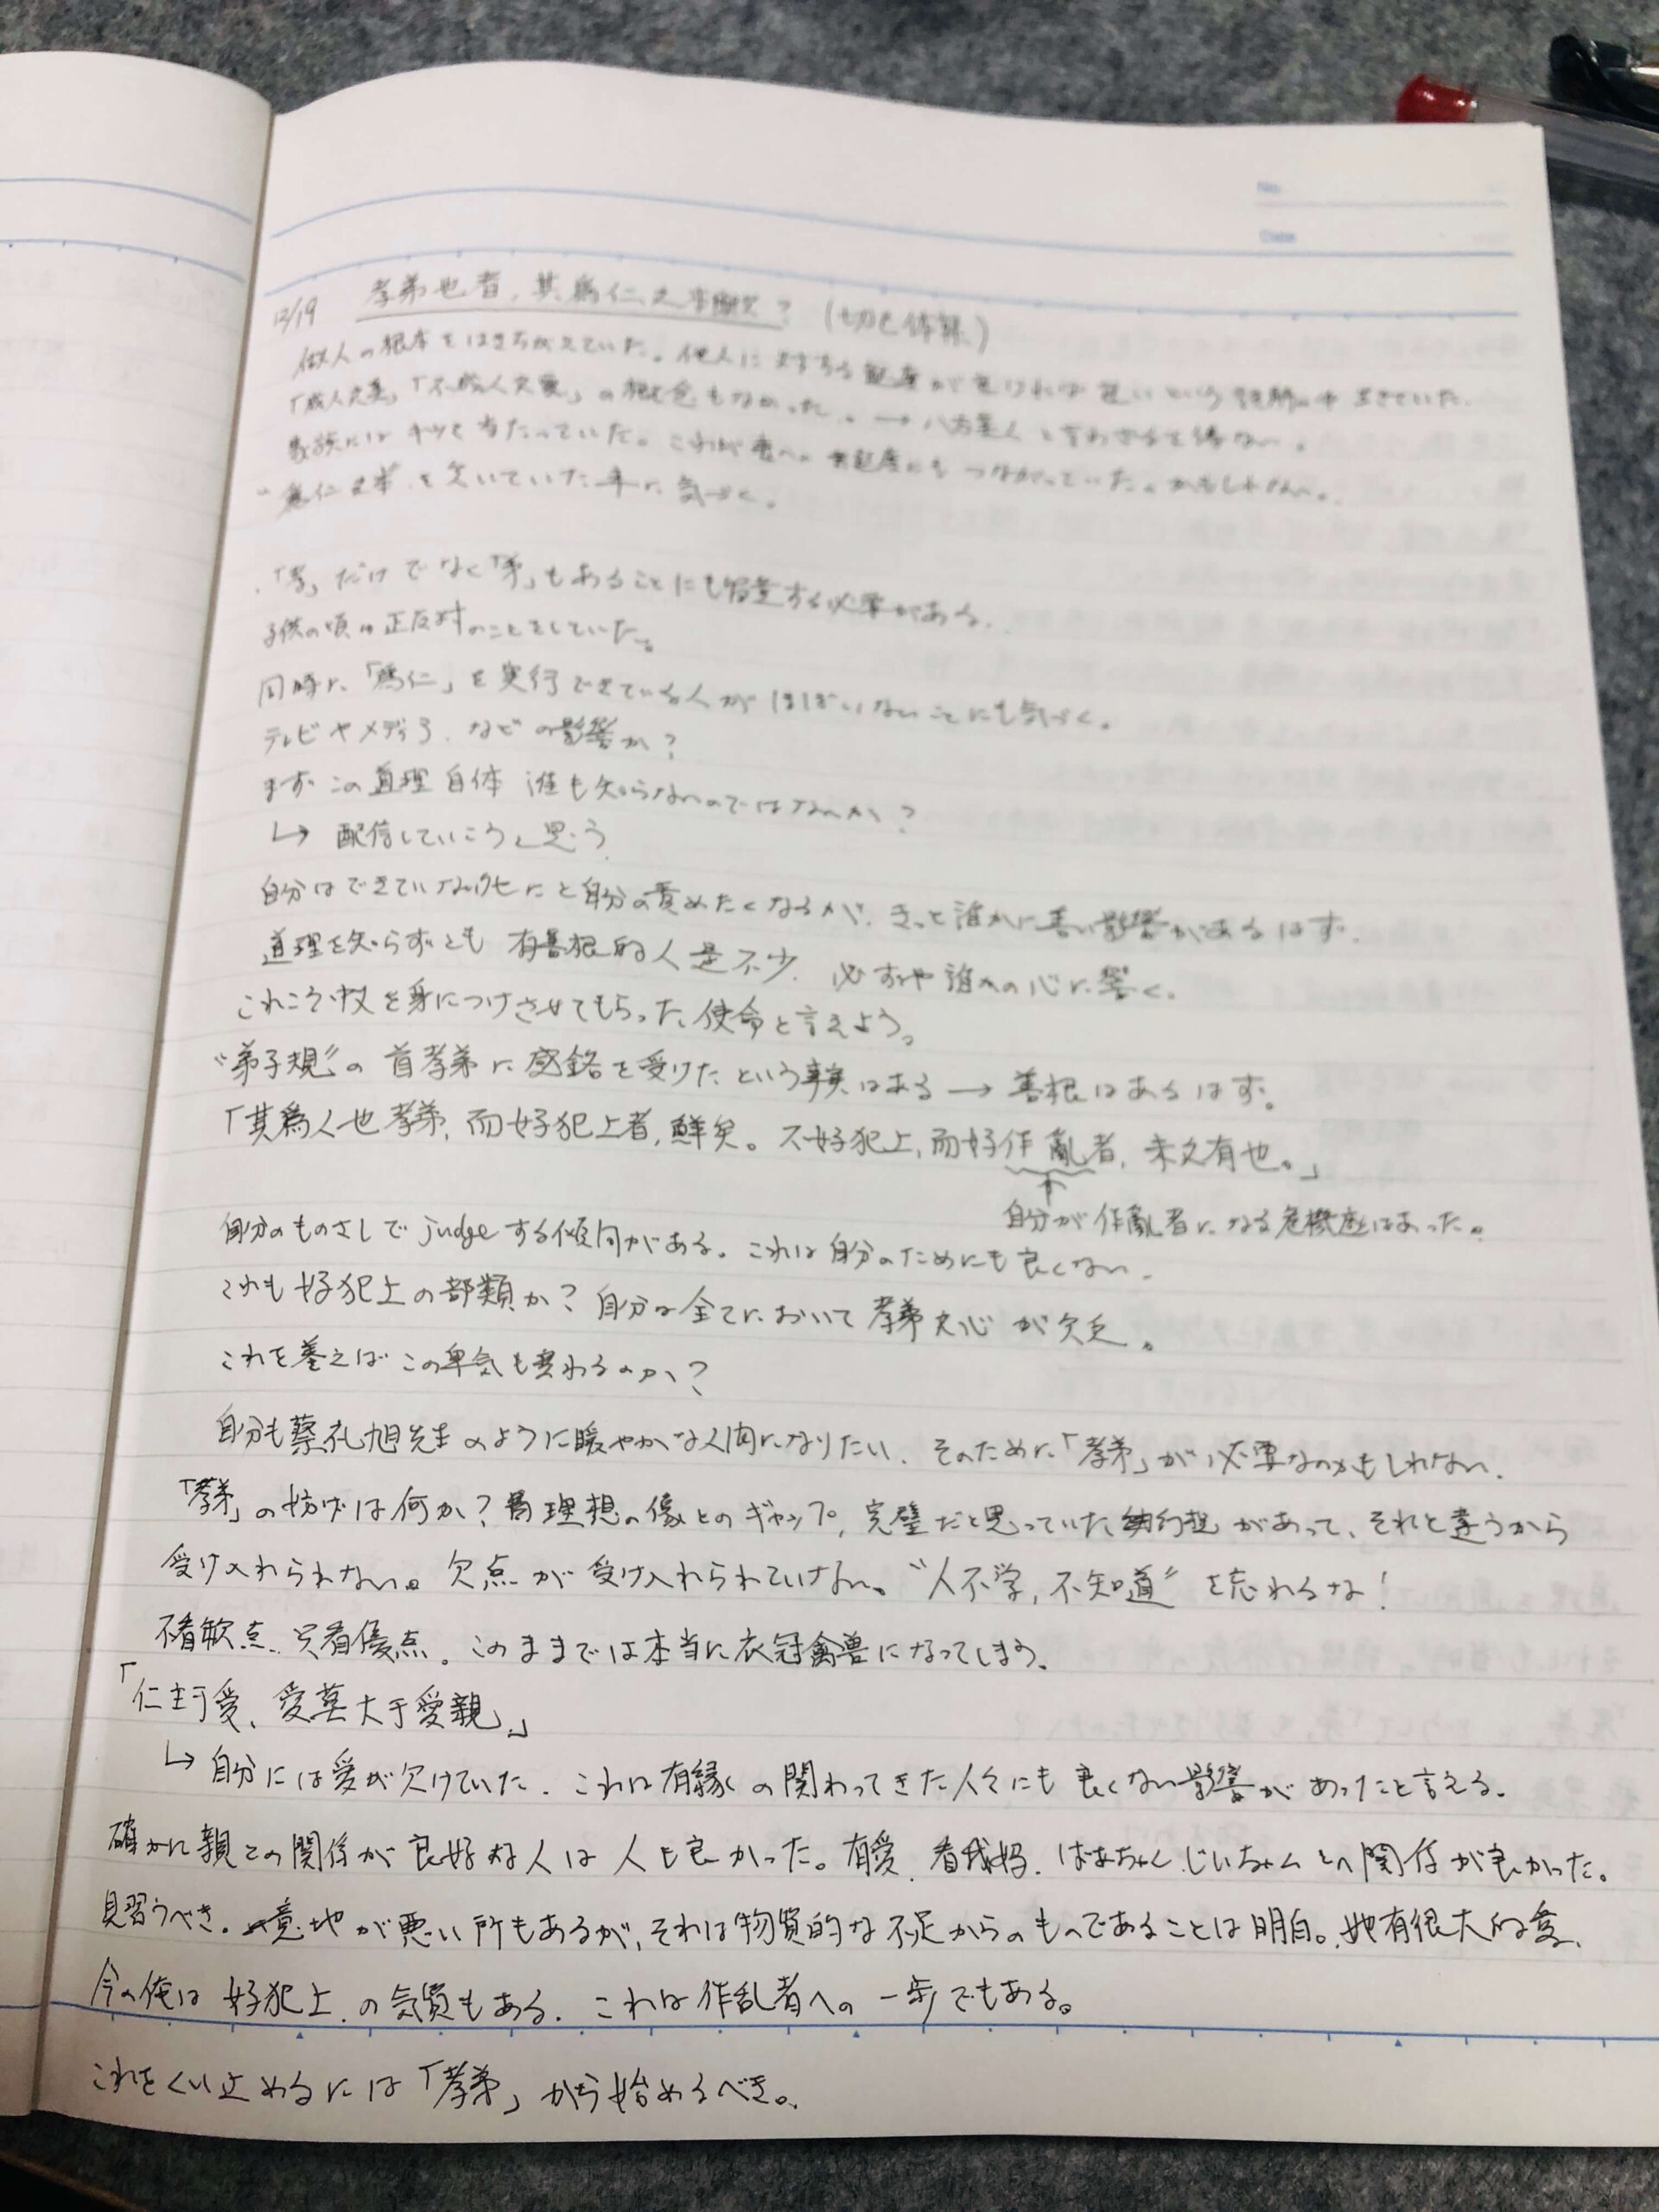 No.
Date
12/19 孝弟也者，其爲仁之本歟？（切己体察）
做人の根本をはきちがえていた。他人に対する態度が良ければ良いという誤解の中生きていた。
「成人之美」「不成人之悪」の概念もなかった。→八方美人と言わざるを得ない。
家族にはキツく当たっていた。これが妻への態度にもつながっていた。かもしれない。
“爲仁之本”を欠いていた事に気づく。
・「孝」だけでなく「弟」もあることにも留意する必要がある。
子供の頃は正反対のことをしていた。
同時に、「爲仁」を実行できている人がほぼいないことにも気づく。
テレビやメディア、などの影響か？
まずこの道理自体誰も知らないのではないか？
↳ 配信していこうと思う
自分はできていないくせにと自分の責めたくなるが、きっと誰かに善い影響があるはず。
道理を知らずとも有善根的人是不少、必ずや誰かの心に響く。
これこそ中文を身につけさせてもらった、使命と言えよう。
“弟子規”の首孝弟に感銘を受けたという事実はある → 善根はあるはず。
「其爲人也孝弟，而好犯上者，鮮矣。不好犯上，而好作亂者，未之有也。」
自分が作亂者になる危機感はあった。
自分のものさしでjudgeする傾向がある。これは自分のためにも良くない。
これも好犯上の部類か？自分は全てにおいて孝弟之心が欠乏。
これを養えばこの卑気も変わるのか？
自分も蔡礼旭先生のように暖やかな人間になりたい、そのために「孝弟」が必要なのかもしれない。
「孝弟」の妨げは何か？理想の像とのギャップ，完璧だと思っていた幻想があって、それと違うから
受け入れられない。欠点が受け入れられていない。“人不学，不知道”を忘れるな！
不看軟点、只看優点。このままでは本当に衣冠禽獣になってしまう。
「仁主于愛、愛莫大于愛親」
↳ 自分には愛が欠けていた。これは有縁の関わってきた人々にも良くない影響があったと言える。
確かに親との関係が良好な人は人も良かった。有愛、看我妈、ばあちゃん、じいちゃんとの関係が良かった。
見習うべき。意地が悪い所もあるが、それは物質的な不足からのものであることは明白。她有很大的愛、
今の俺は好犯上、の気質もある。これは作乱者への一歩でもある。
これをくい止めるには「孝弟」から始めるべき。